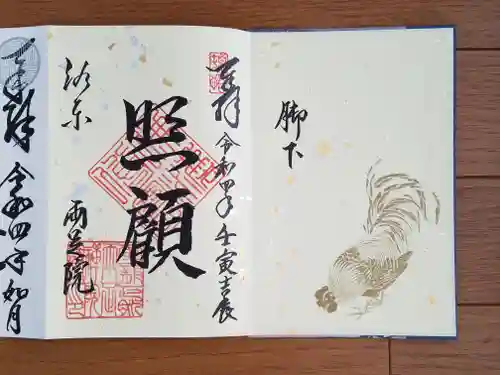 脚下
奉拝 令和四年 壬寅吉辰
照顧
洛東
両足院
奉拝 令和四年 如月